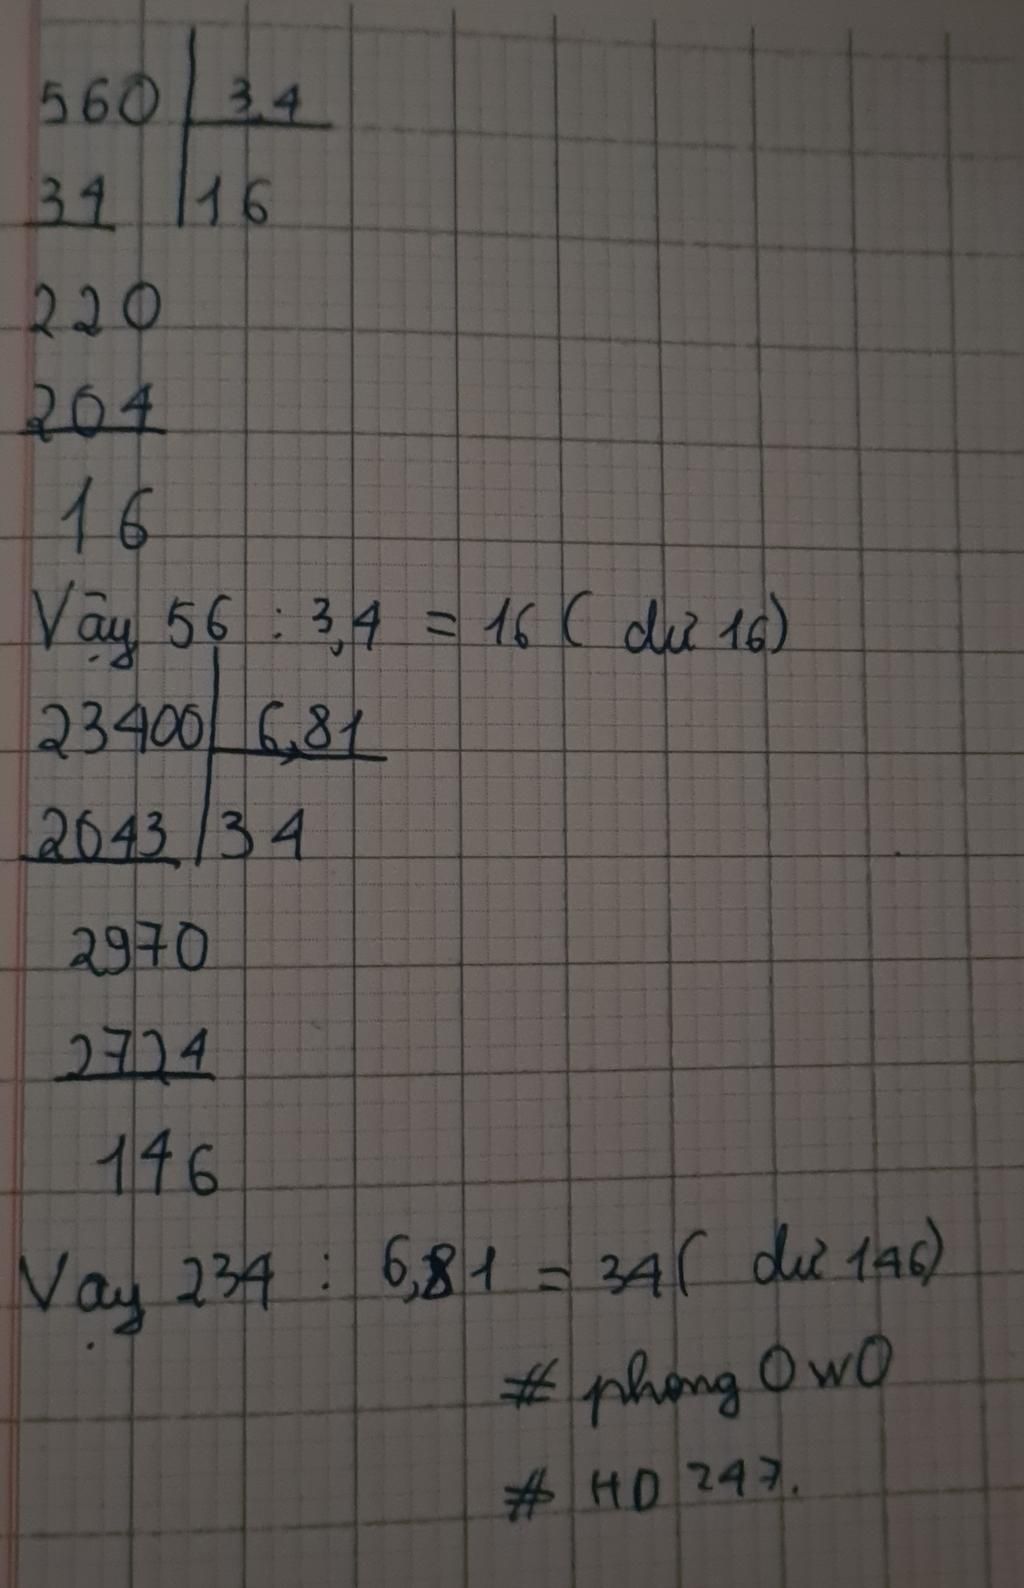 560 3,4
34 16
220
204
16
Vậy 56 : 3,4 = 16 ( dư 16)
23400 6,81
2043 34
2970
2724
146
Vậy 234 : 6,81 = 34 ( dư 146)
# phong OwO
# HD 247.